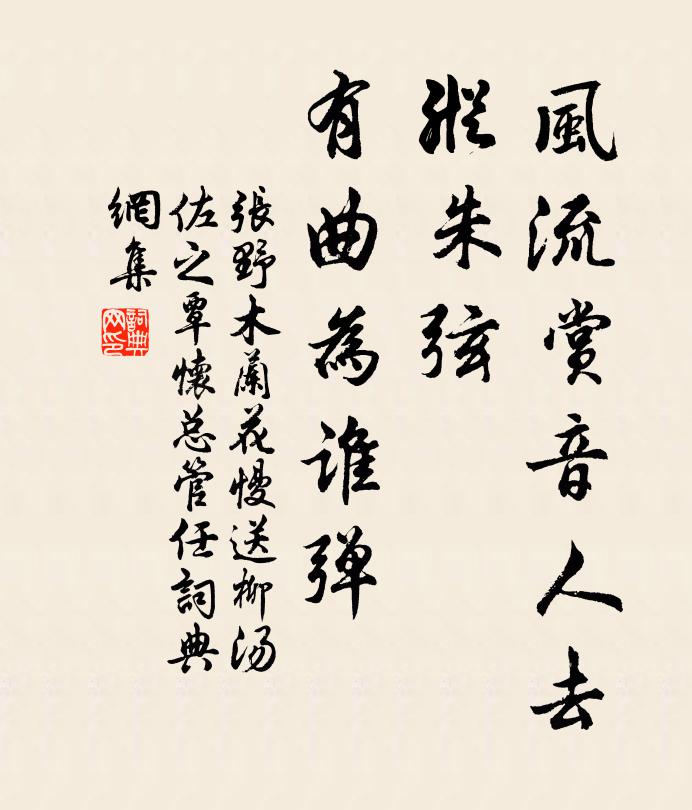 風流賞音人去
縱朱弦
有曲為誰弹
張野木蘭花慢送柳汤
佐之覃懷总管任詞典
網集
詞典网印